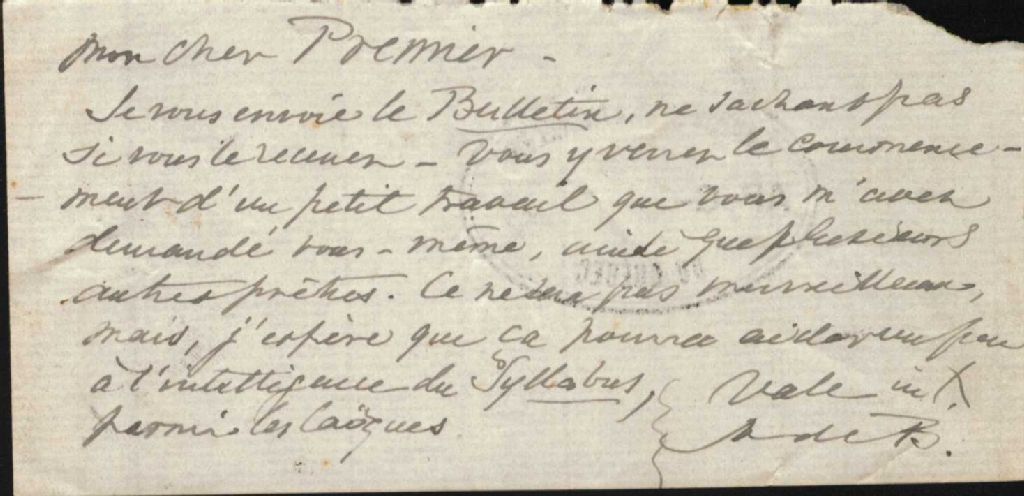 Mon cher Premier -
Je vous envoie le Bulletin, ne sachant pas
si vous le recevez - Vous y verrez le commence-
ment d'un petit travail que vous m'avez
demandé vous-même, ainsi que plusieurs
autres prêtres. Ce ne sera pas merveilleux,
mais, j'espère que ça pourra aider un peu
à l'intelligence du Syllabus,
parmi les laïques.
Vale in X.
A de B.